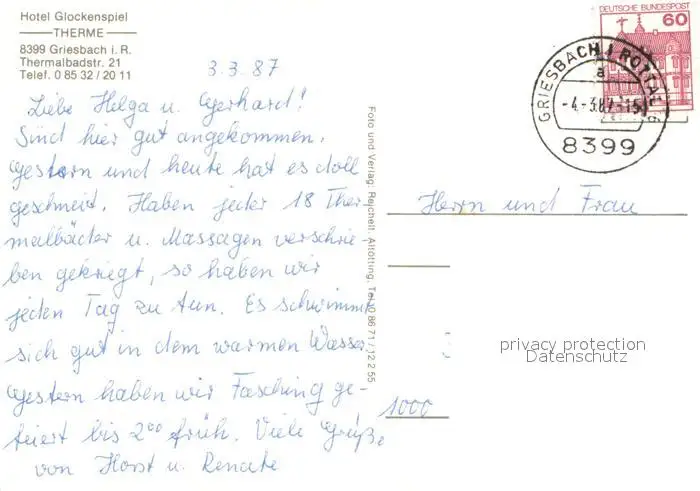 Hotel Glockenspiel
THERME
8399 Griesbach i. R.
Thermalbadstr. 21
Telef. 0 85 32 / 20 11
3.3.87
Liebe Helga u. Gerhard!
Sind hier gut angekommen.
Gestern und heute hat es doll
geschneit. Haben jeder 18 Ther-
malbäder u. Massagen verschrie-
ben gekriegt, so haben wir
jeden Tag zu tun. Es schwimmt
sich gut in dem warmen Wasser.
Gestern haben wir Fasching ge-
feiert bis 2⁰⁰ früh. Viele Grüße
von Horst u. Renate
Foto und Verlag: Reichelt, Altötting, Tel. 0 86 71 / 12 2 55
DEUTSCHE BUNDESPOST
60
GRIESBACH I ROTTAL
a
-4.-3.87-15
8399
Herrn und Frau
privacy protection
Datenschutz
1000